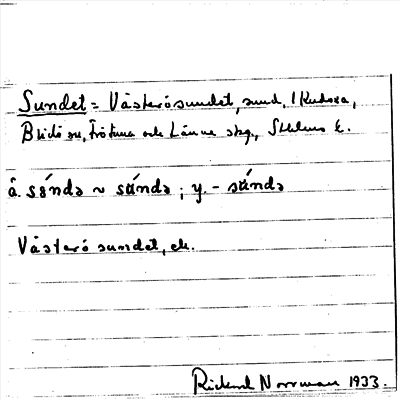 Sundet = Västerösundet, sund, i Kudoxa,
Blidö sn, Frötuna och Länna skg., Sthlms l.
å. sǿndə ~ sʉ́ndə ; y. - sʉ́ndə
Västerösundet, ek.
Rickard Norrman 1933.